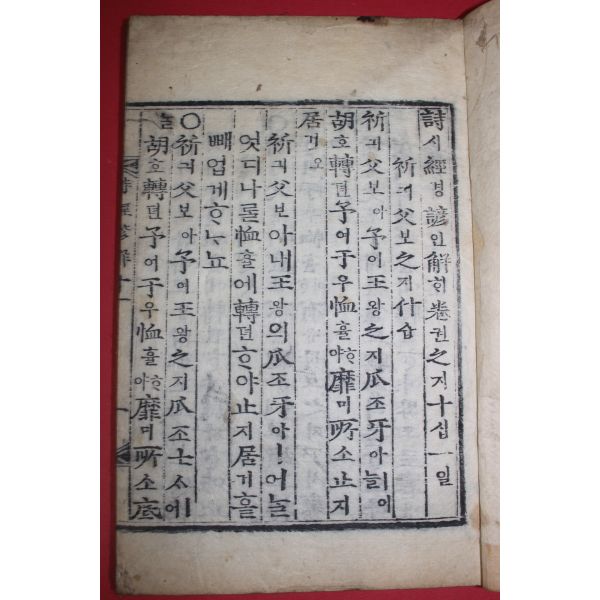 詩시經경諺언解ᄒᆡ卷권之지十십一일
祈긔父보之지什습
祈긔父보아予여王왕之지爪조牙아ㅣ어ᄂᆞᆯ
胡호轉뎐予여于우恤휼ᄒᆞ야靡미所소止지
居거오
祈긔父보아내王왕의爪조牙아ㅣ어ᄂᆞᆯ
엇디나ᄅᆞᆯ恤휼에轉뎐ᄒᆞ야止지居거ᄒᆞᆯ
빼업게ᄒᆞᄂᆞ뇨
○祈긔父보아予여王왕之지爪조士ᄉᆞ에
胡호轉뎐予여于우恤휼ᄒᆞ야靡미所소底
詩經諺解十一